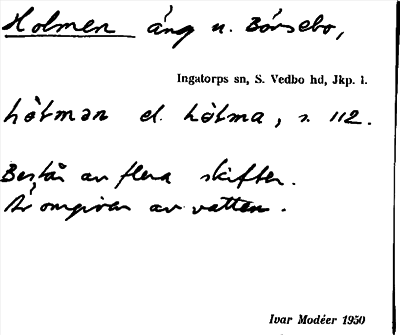 Holmen äng n. Börsebo,
Ingatorps sn, S. Vedbo hd, Jkp. l.
hòtmən el. hòtma, s. 112.
Består av flera skiften.
Är omgiven av vatten.
Ivar Modéer 1950